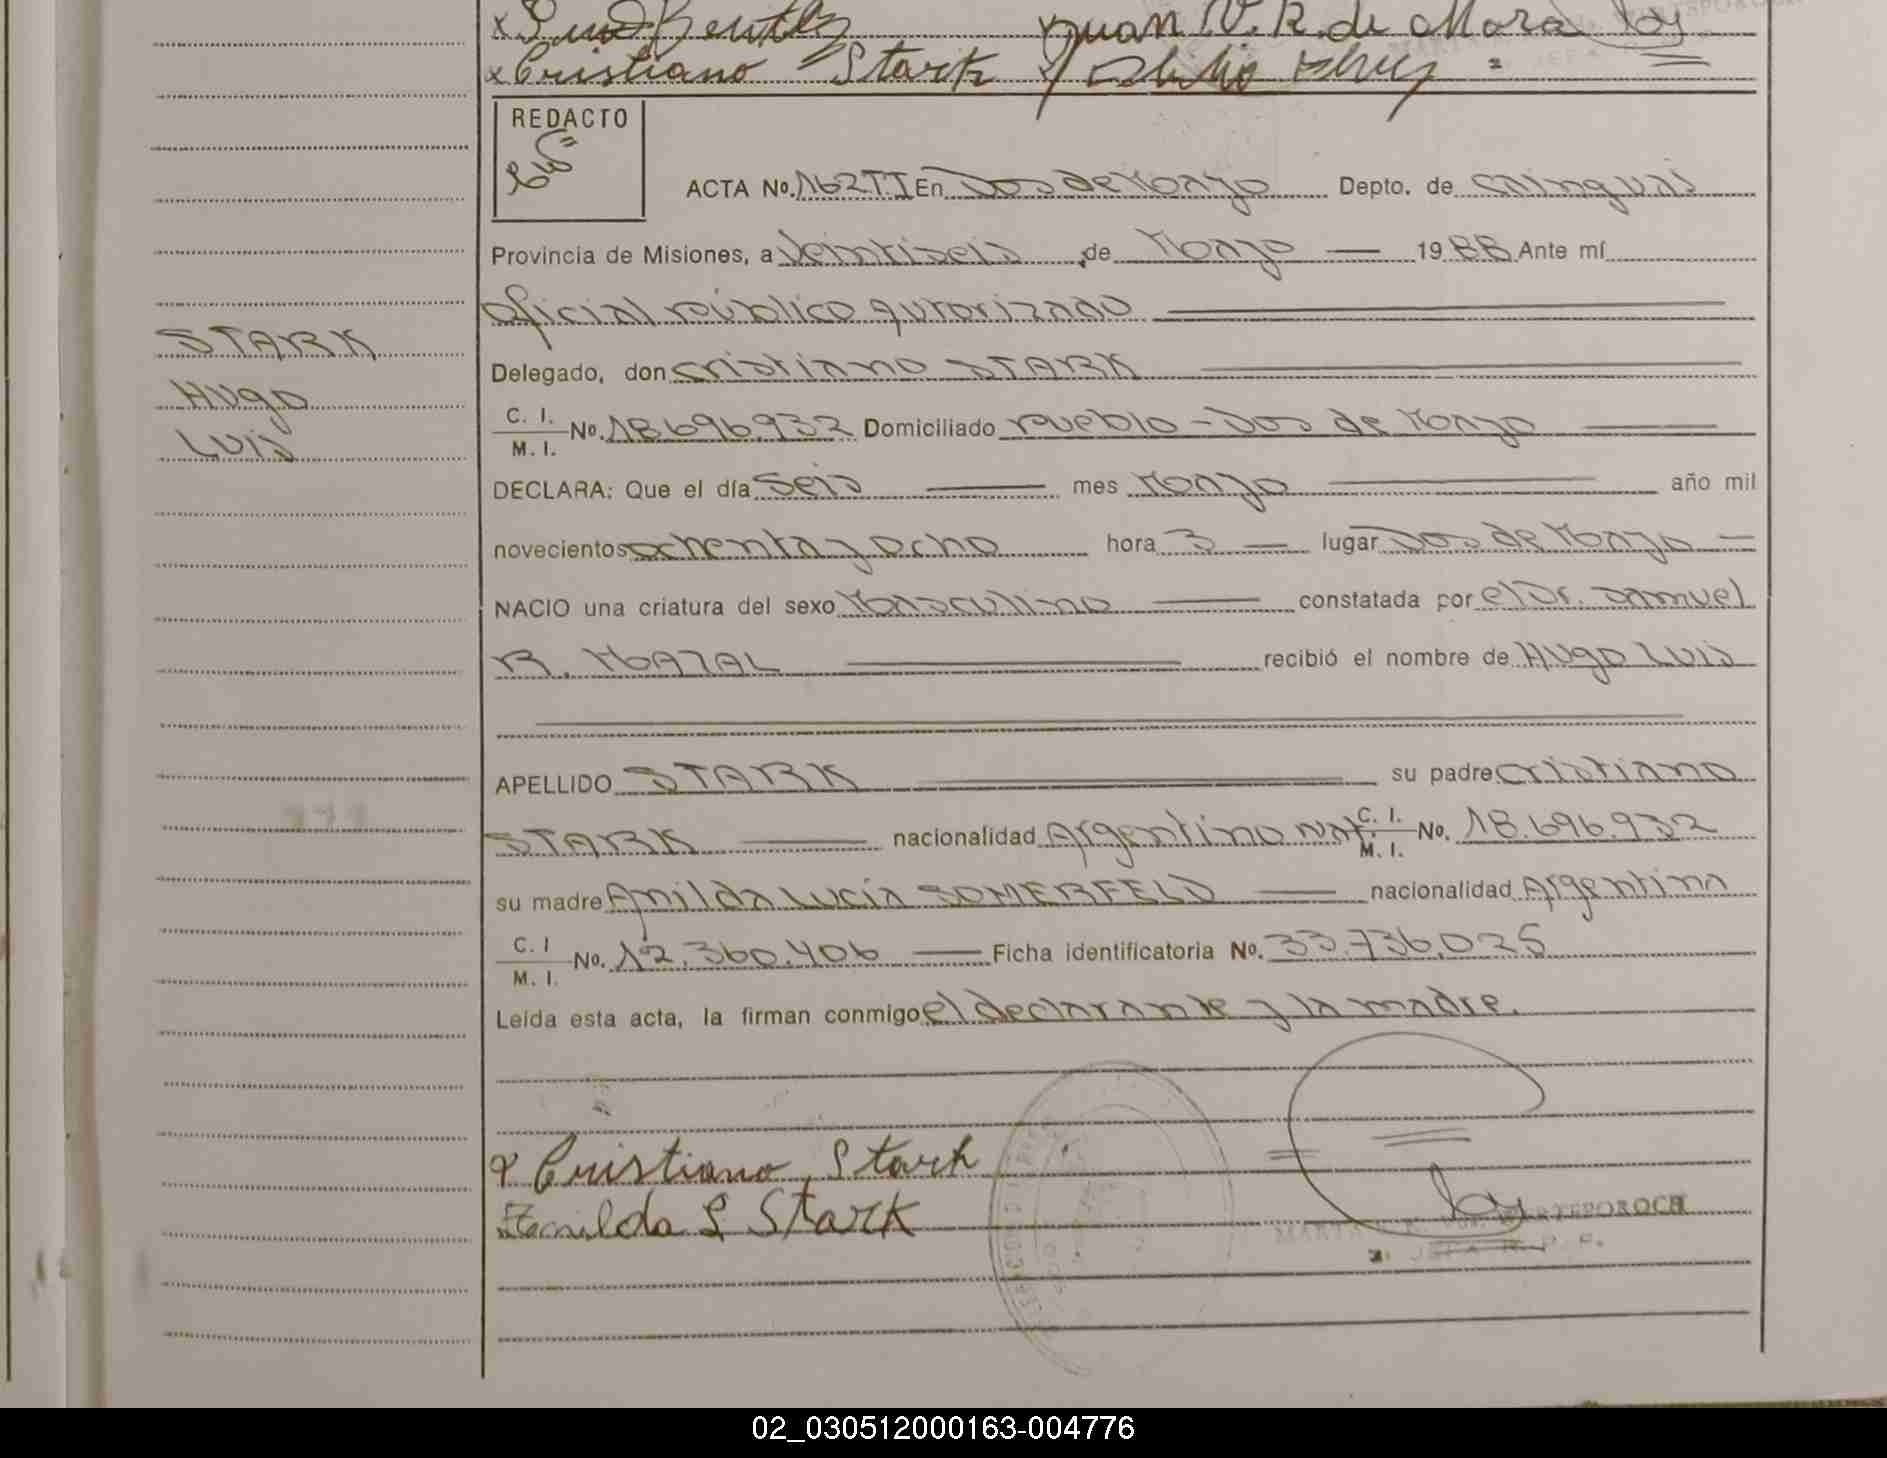 x Luis Benitez Juan V. R. de Mora
x Cristiano Stark
REDACTO
ACTA No. 162 T.I En Dos de Mayo Depto. de Cainguas
Provincia de Misiones, a veintiseis de Mayo 1988 Ante mí
Oficial público autorizado
STARK
Delegado, don Cristiano STARK
HUgo
C. I. M. I. No. 18.696.932 Domiciliado Pueblo - Dos de Mayo
LUis
DECLARA: Que el día Seis mes Mayo año mil
novecientos ochenta y ocho hora 3 lugar Dos de Mayo
NACIO una criatura del sexo Masculino constatada por el Dr. Samuel
R. MbAZAL recibió el nombre de HUgo LUis
APELLIDO STARK su padre Cristiano
STARK nacionalidad Argentino Nat. C. I. M. I. No. 18.696.932
su madre Amilda Lucía SOMERFELD nacionalidad Argentina
C. I M. I. No. 12.360.406 Ficha identificatoria No. 33.736.025
Leída esta acta, la firman conmigo el declarante y la madre.
x Cristiano Stark
Stark
MARTA WARTEPOROCH
JEFA R. P. P.
02_030512000163-004776